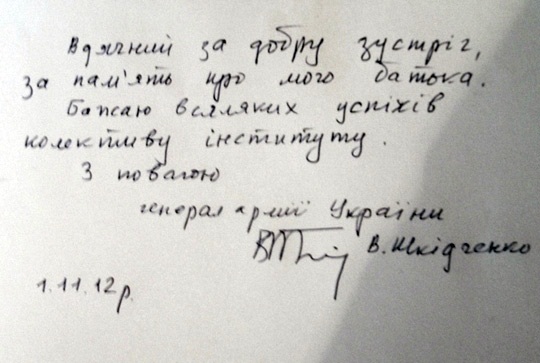 Вдячний за добру зустріч,
за пам'ять про мого батька.
Бажаю всіляких успіхів
колективу інституту.
З повагою
генерал армії України
В. Шкідченко
1.11.12р.